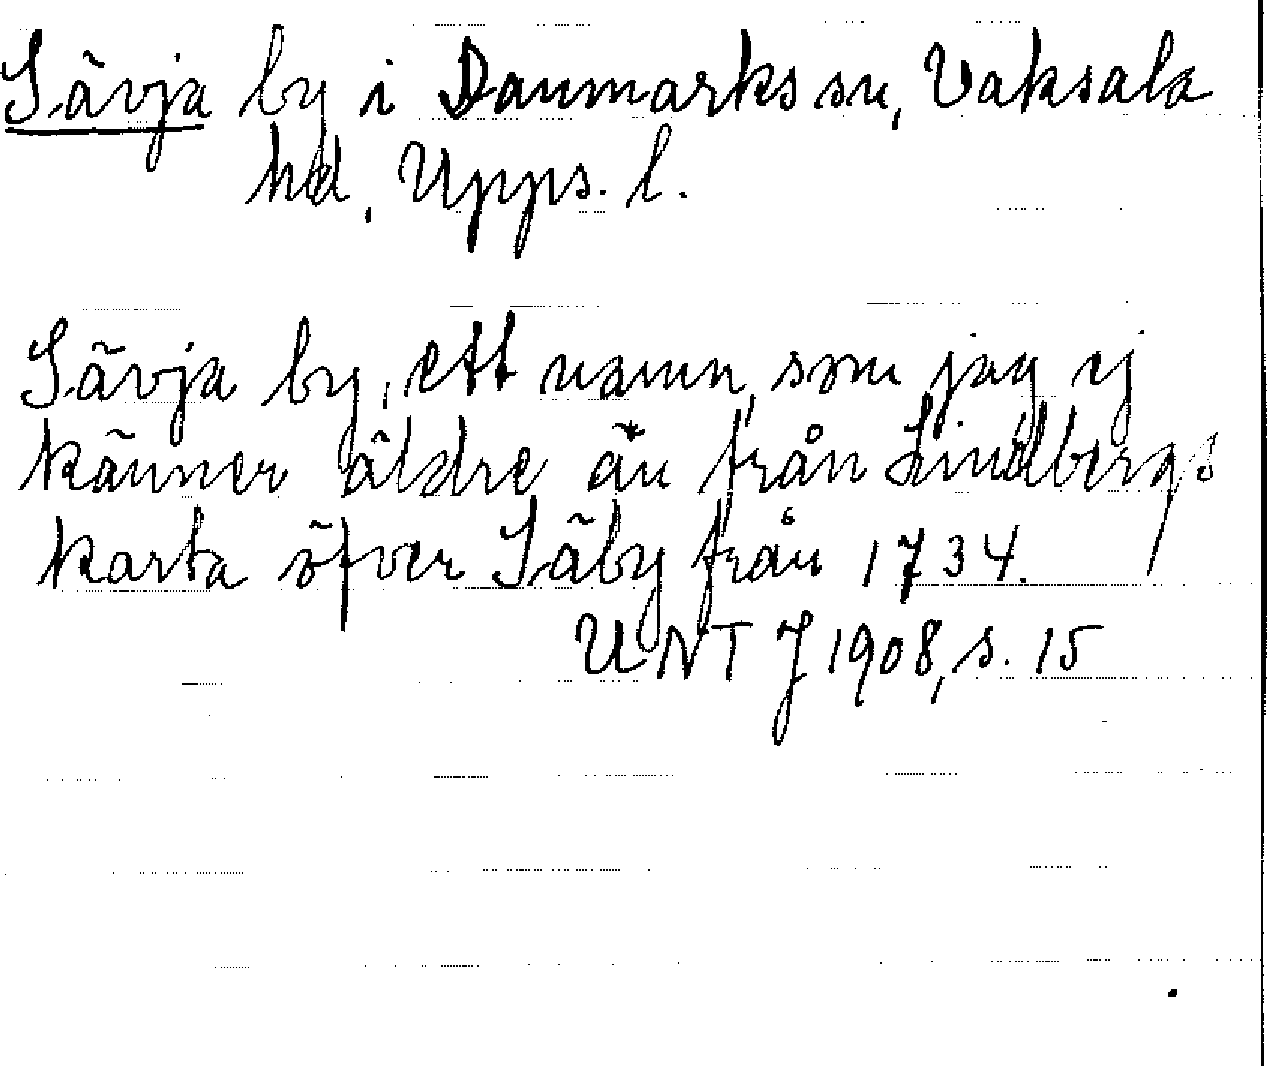 Sävja by i Danmarks sn, Vaksala
hd, Upps. l.
Sävja by, ett namn, som jag ej
känner äldre än från Lindbergs
karta öfver Säby från 1734.
UNT J 1908, s. 15